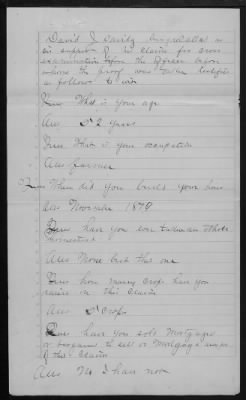 David J
in support of his claim for cross
examination before the officer before
whom the proof was taken testifies
as follows to wit
Ques What is your age
Ans 52 years
Ques What is your occupation
Ans farmer
Ques When did you build your house
Ans November 1879
Ques have you ever
Ans None but this one
Ques how many crops have you
raised on this claim
Ans crops
Ques have you sold Mortgaged
or bargained to sell or Mortgage any
of this claim
Ans No I have not